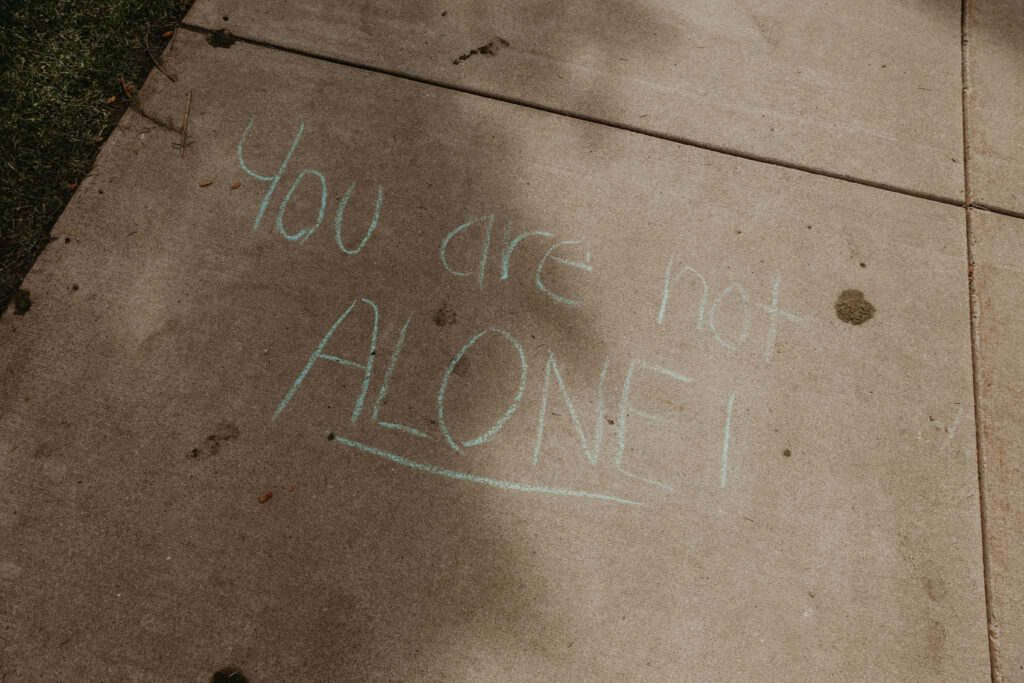 You are not
ALONE!